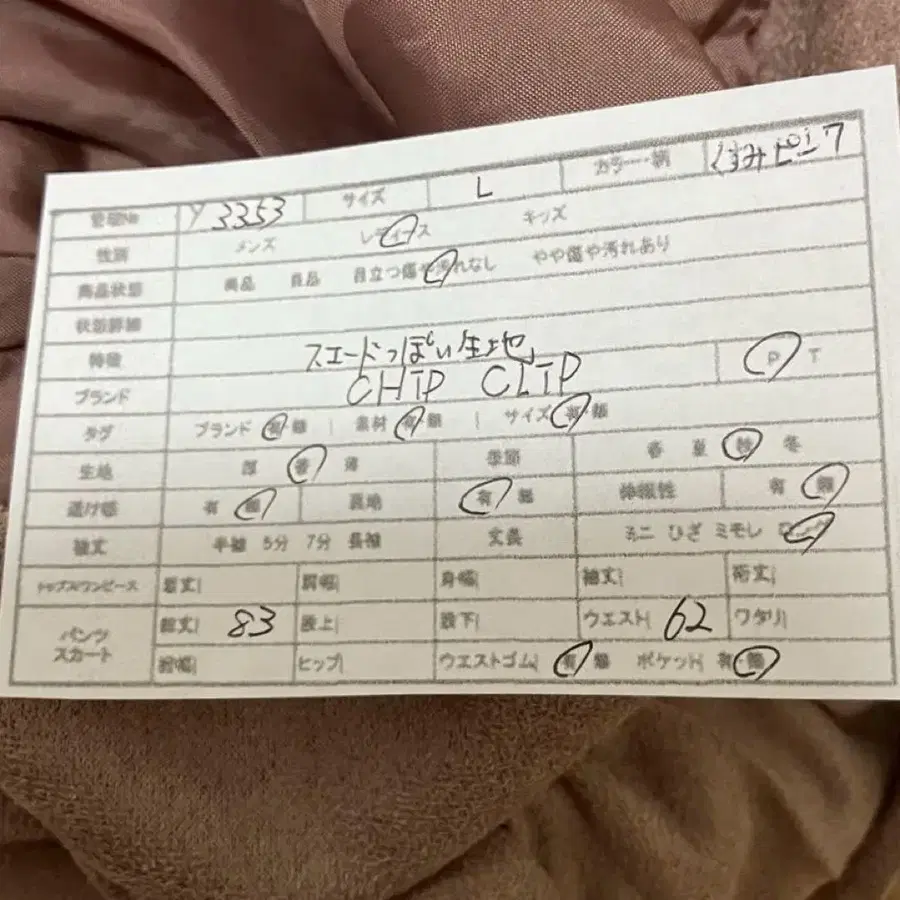 管理No Y 3353 サイズ L カラー・柄 くすみピンク
性別 メンズ レディース キッズ
商品状態 美品 良品 目立つ傷や汚れなし やや傷や汚れあり
状態詳細
特徴 スエードっぽい生地
ブランド CHIP CLIP P T
タグ ブランド 有・無 | 素材 有・無 | サイズ 有・無
生地 厚 普 薄 季節 春 夏 秋 冬
透け感 有 無 裏地 有 無 伸縮性 有 無
袖丈 半袖 5分 7分 長袖 丈長 ミニ ひざ ミモレ ロング
トップス/ワンピース 着丈| 肩幅| 身幅| 袖丈| 裄丈|
パンツ スカート 総丈| 83 股上| 股下| ウエスト| 62 ワタリ|
裾幅| ヒップ| ウエストゴム| 有 無 ポケット| 有・無